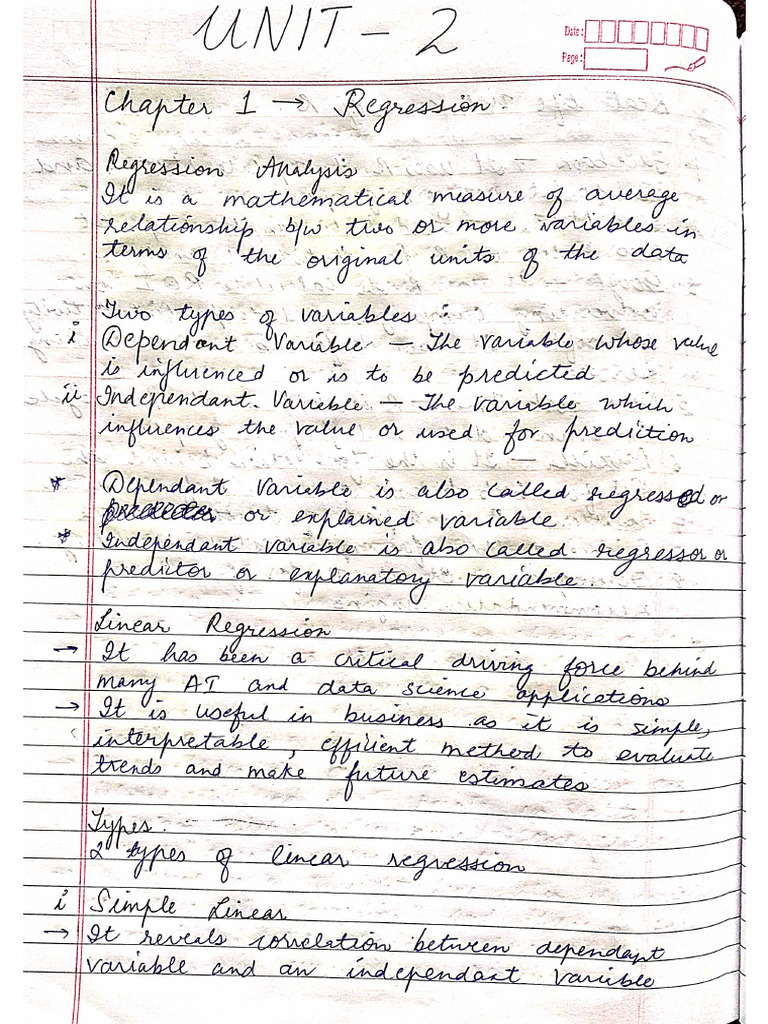 UNIT - 2
Date:
Page:
Chapter 1 → Regression
Regression Analysis
It is a mathematical measure of average
relationship b/w two or more variables in
terms of the original units of the data
Two types of variables :
i Dependant Variable - The variable whose value
is influenced or is to be predicted
ii Independant Variable - The variable which
influences the value or used for prediction
* Dependant variable is also called regressed or
or explained variable
* Independant variable is also called regressor or
predictor or explanatory variable
Linear Regression
→ It has been a critical driving force behind
many AI and data science applications
→ It is useful in business as it is simple,
interpretable, efficient method to evaluate
trends and make future estimates
Types.
2 types of linear regression
i Simple Linear
→ It reveals correlation between dependant
variable and an independant variable